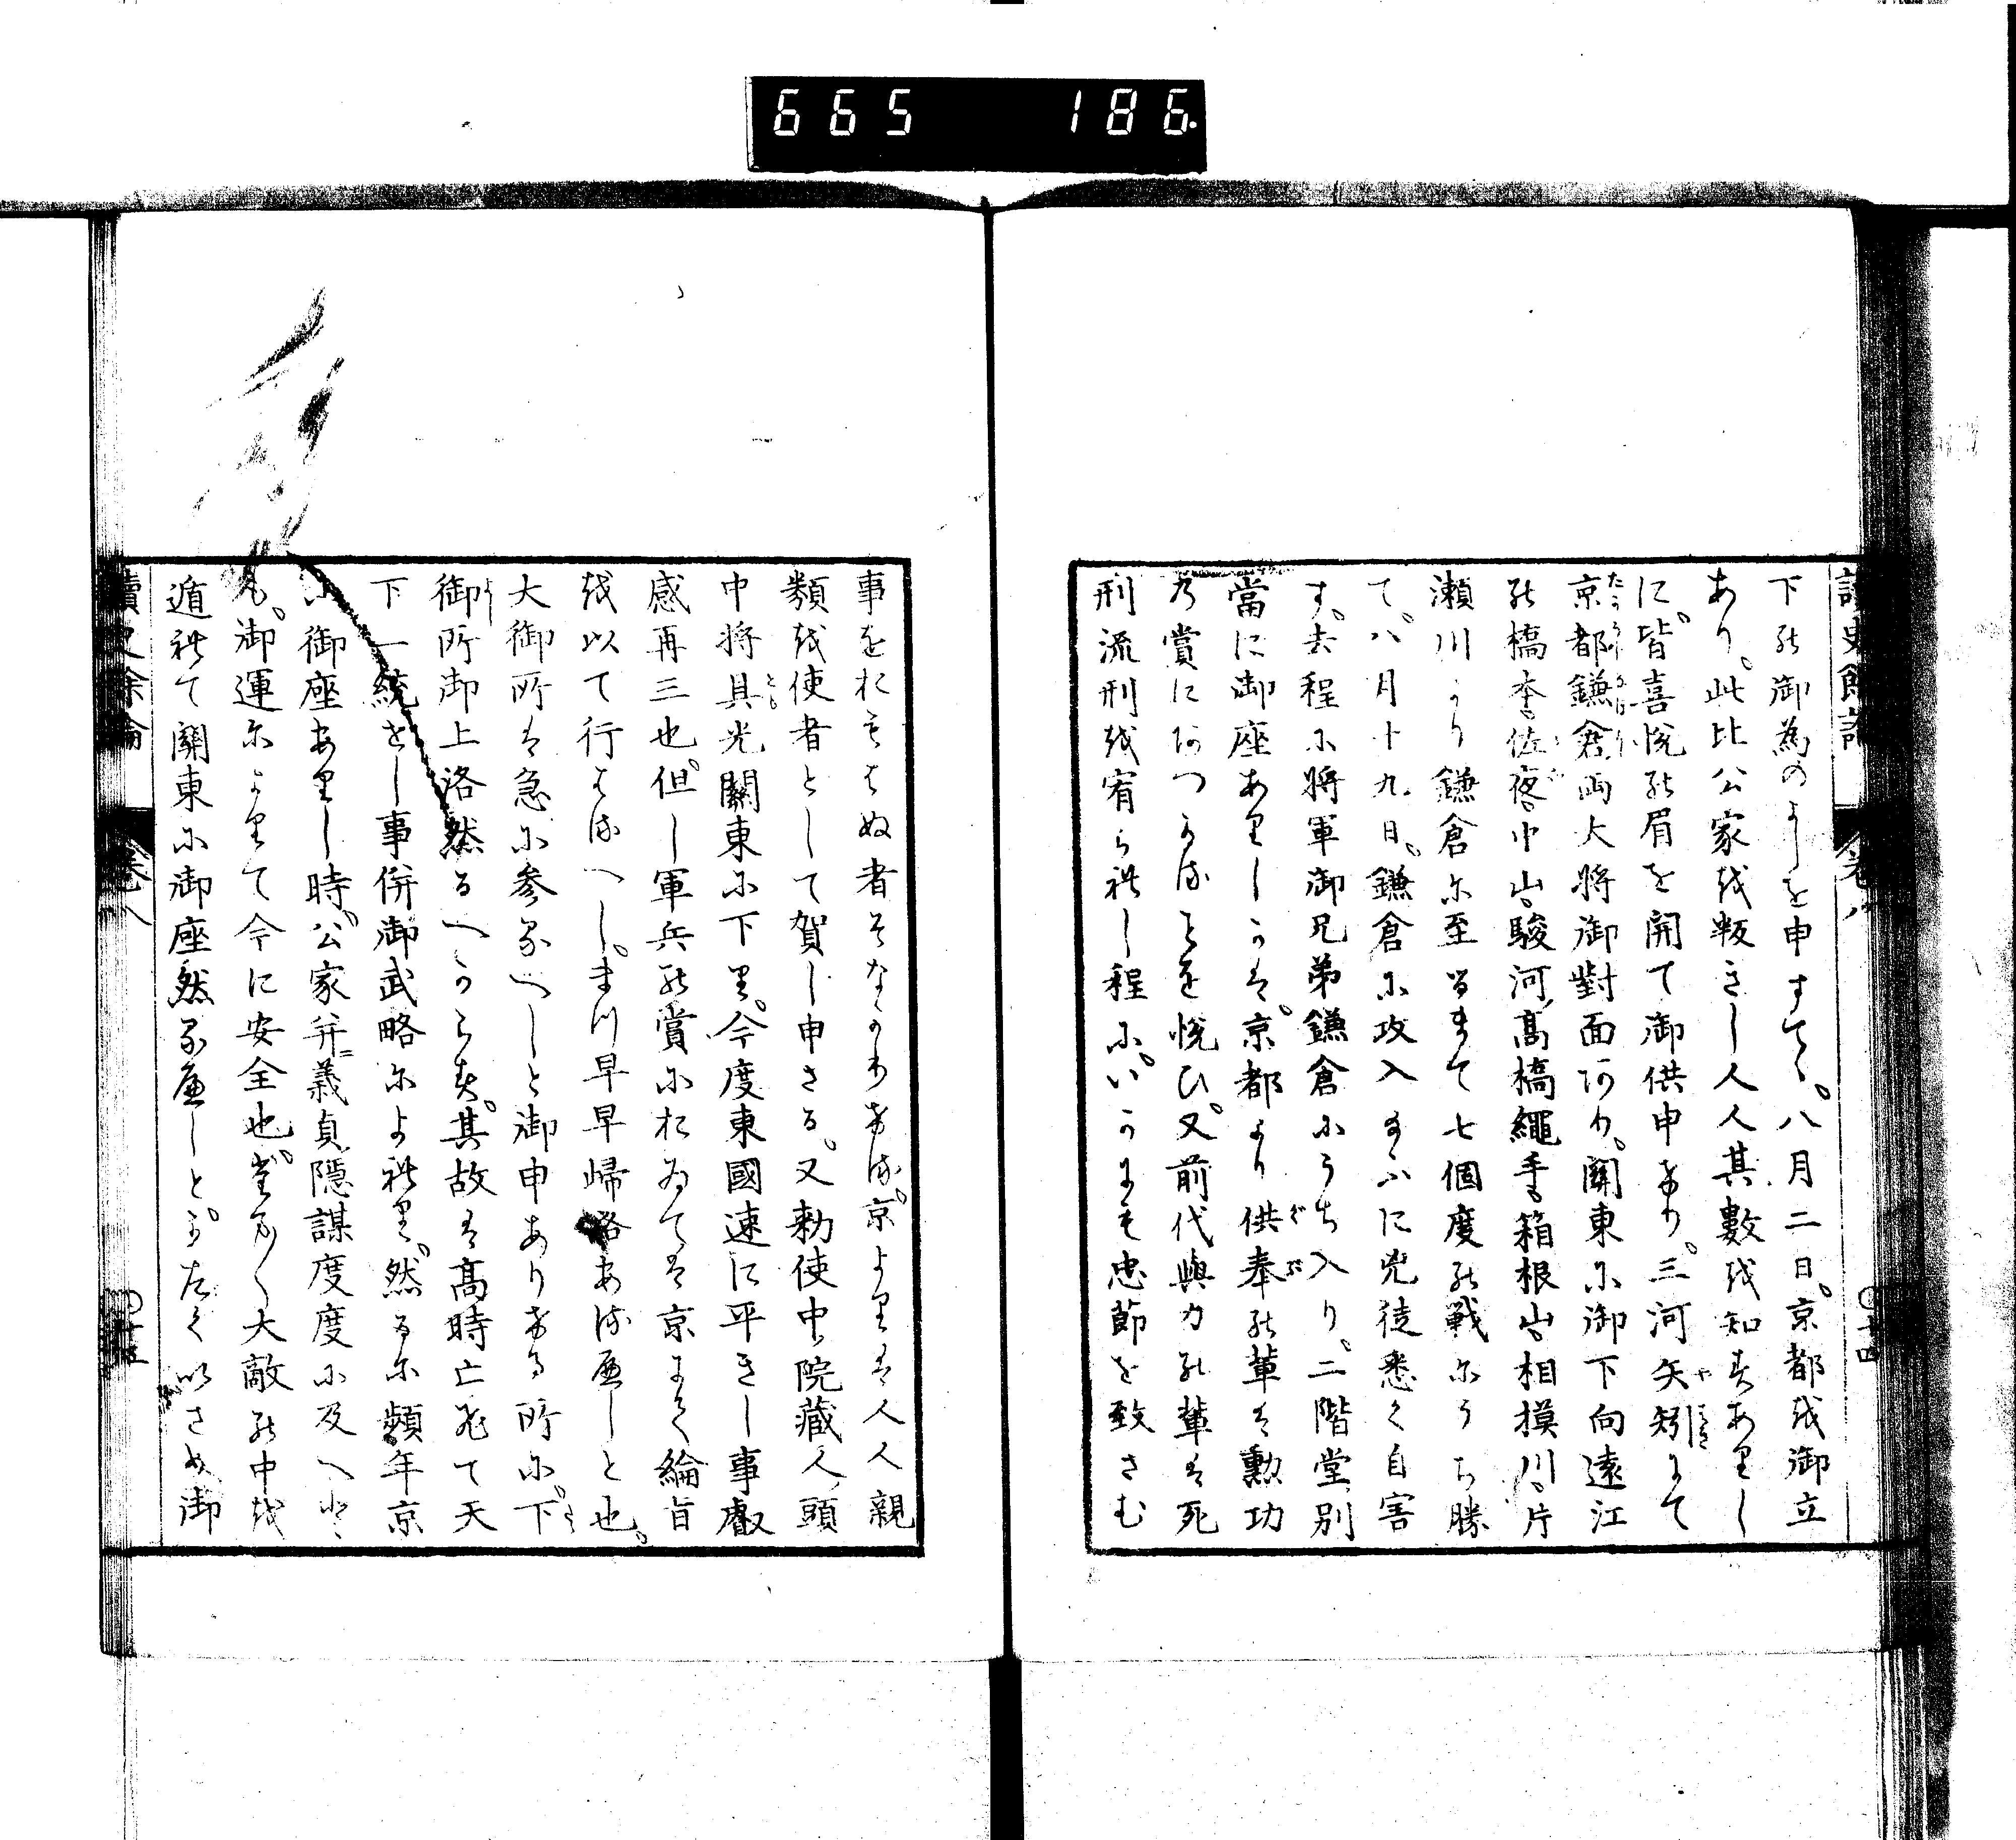 665 186
下の御為のよしを申すてゝ。八月二日。京都を御立
あり。此比公家を叛きし人人其數を知らすありし
に。皆喜悦の眉を開て御供申けり。三河矢矧にて
京都鎌倉両大將御對面あり。關東に御下向遠江
の橋本。佐夜中山。駿河高橋繩手。箱根山。相摸川。片
瀬川より鎌倉に至るまて七個度の戦にうち勝
て。八月十九日。鎌倉に攻入給ふに兇徒悉く自害
す。去程に將軍御兄弟鎌倉にうち入り。二階堂別
當に御座ありしかは。京都より供奉の輩は勲功
の賞にあつかることを悦ひ。又前代與力の輩は死
刑流刑を宥られし程に。いかにも忠節を致さむ
讀史餘論 卷八 〇十四
事をおもはぬ者そなかりける。京よりは人人親
類を使者として賀し申さる。又勅使中院藏人頭
中將具光關東に下り。今度東國速に平きし事叡
感再三也。但し軍兵の賞におゐては京にて綸旨
を以て行はるへし。まつ早早歸洛あるへしと也。
大御所は急に参るへしと御申ありける所に。下
御所御上洛然るへからす。其故は高時亡ひて天
下一統せし事併御武略によれり。然るに頻年京
に御座ありし時。公家并義貞隱謀度度に及へと
も。御運によりて今に安全也。たま〱大敵の中を
遁れて關東に御座然るへしと。かたく いさめ御
讀史餘論 卷八 〇十五